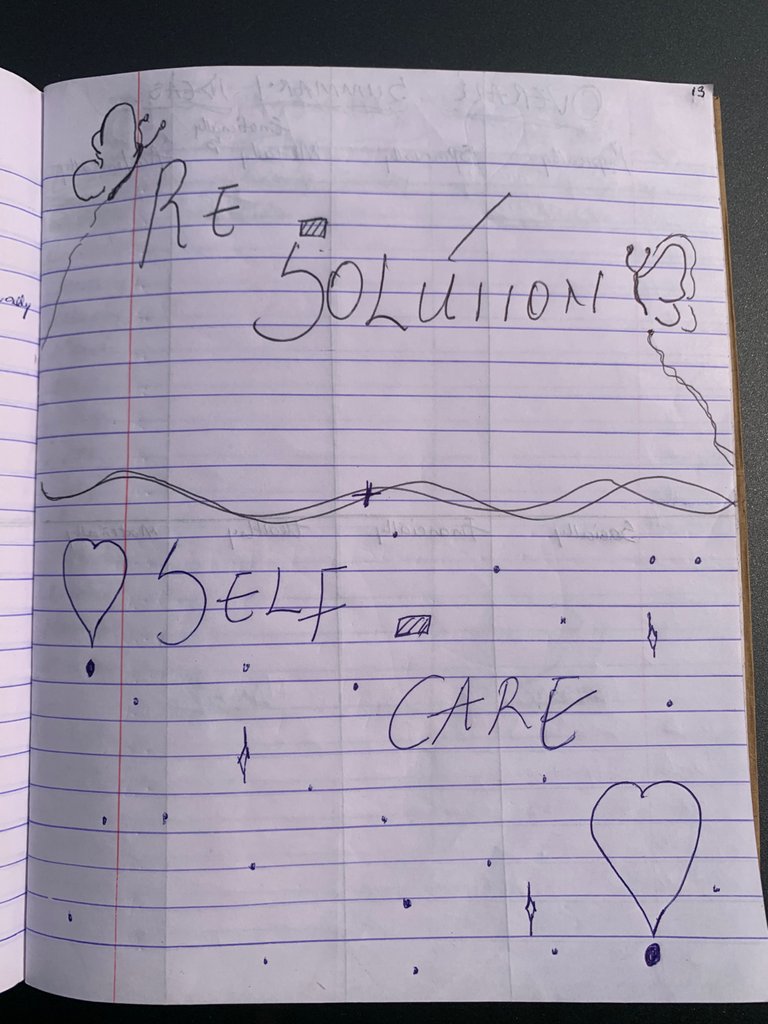 13
RE -
SOLUTION
SELF -
CARE